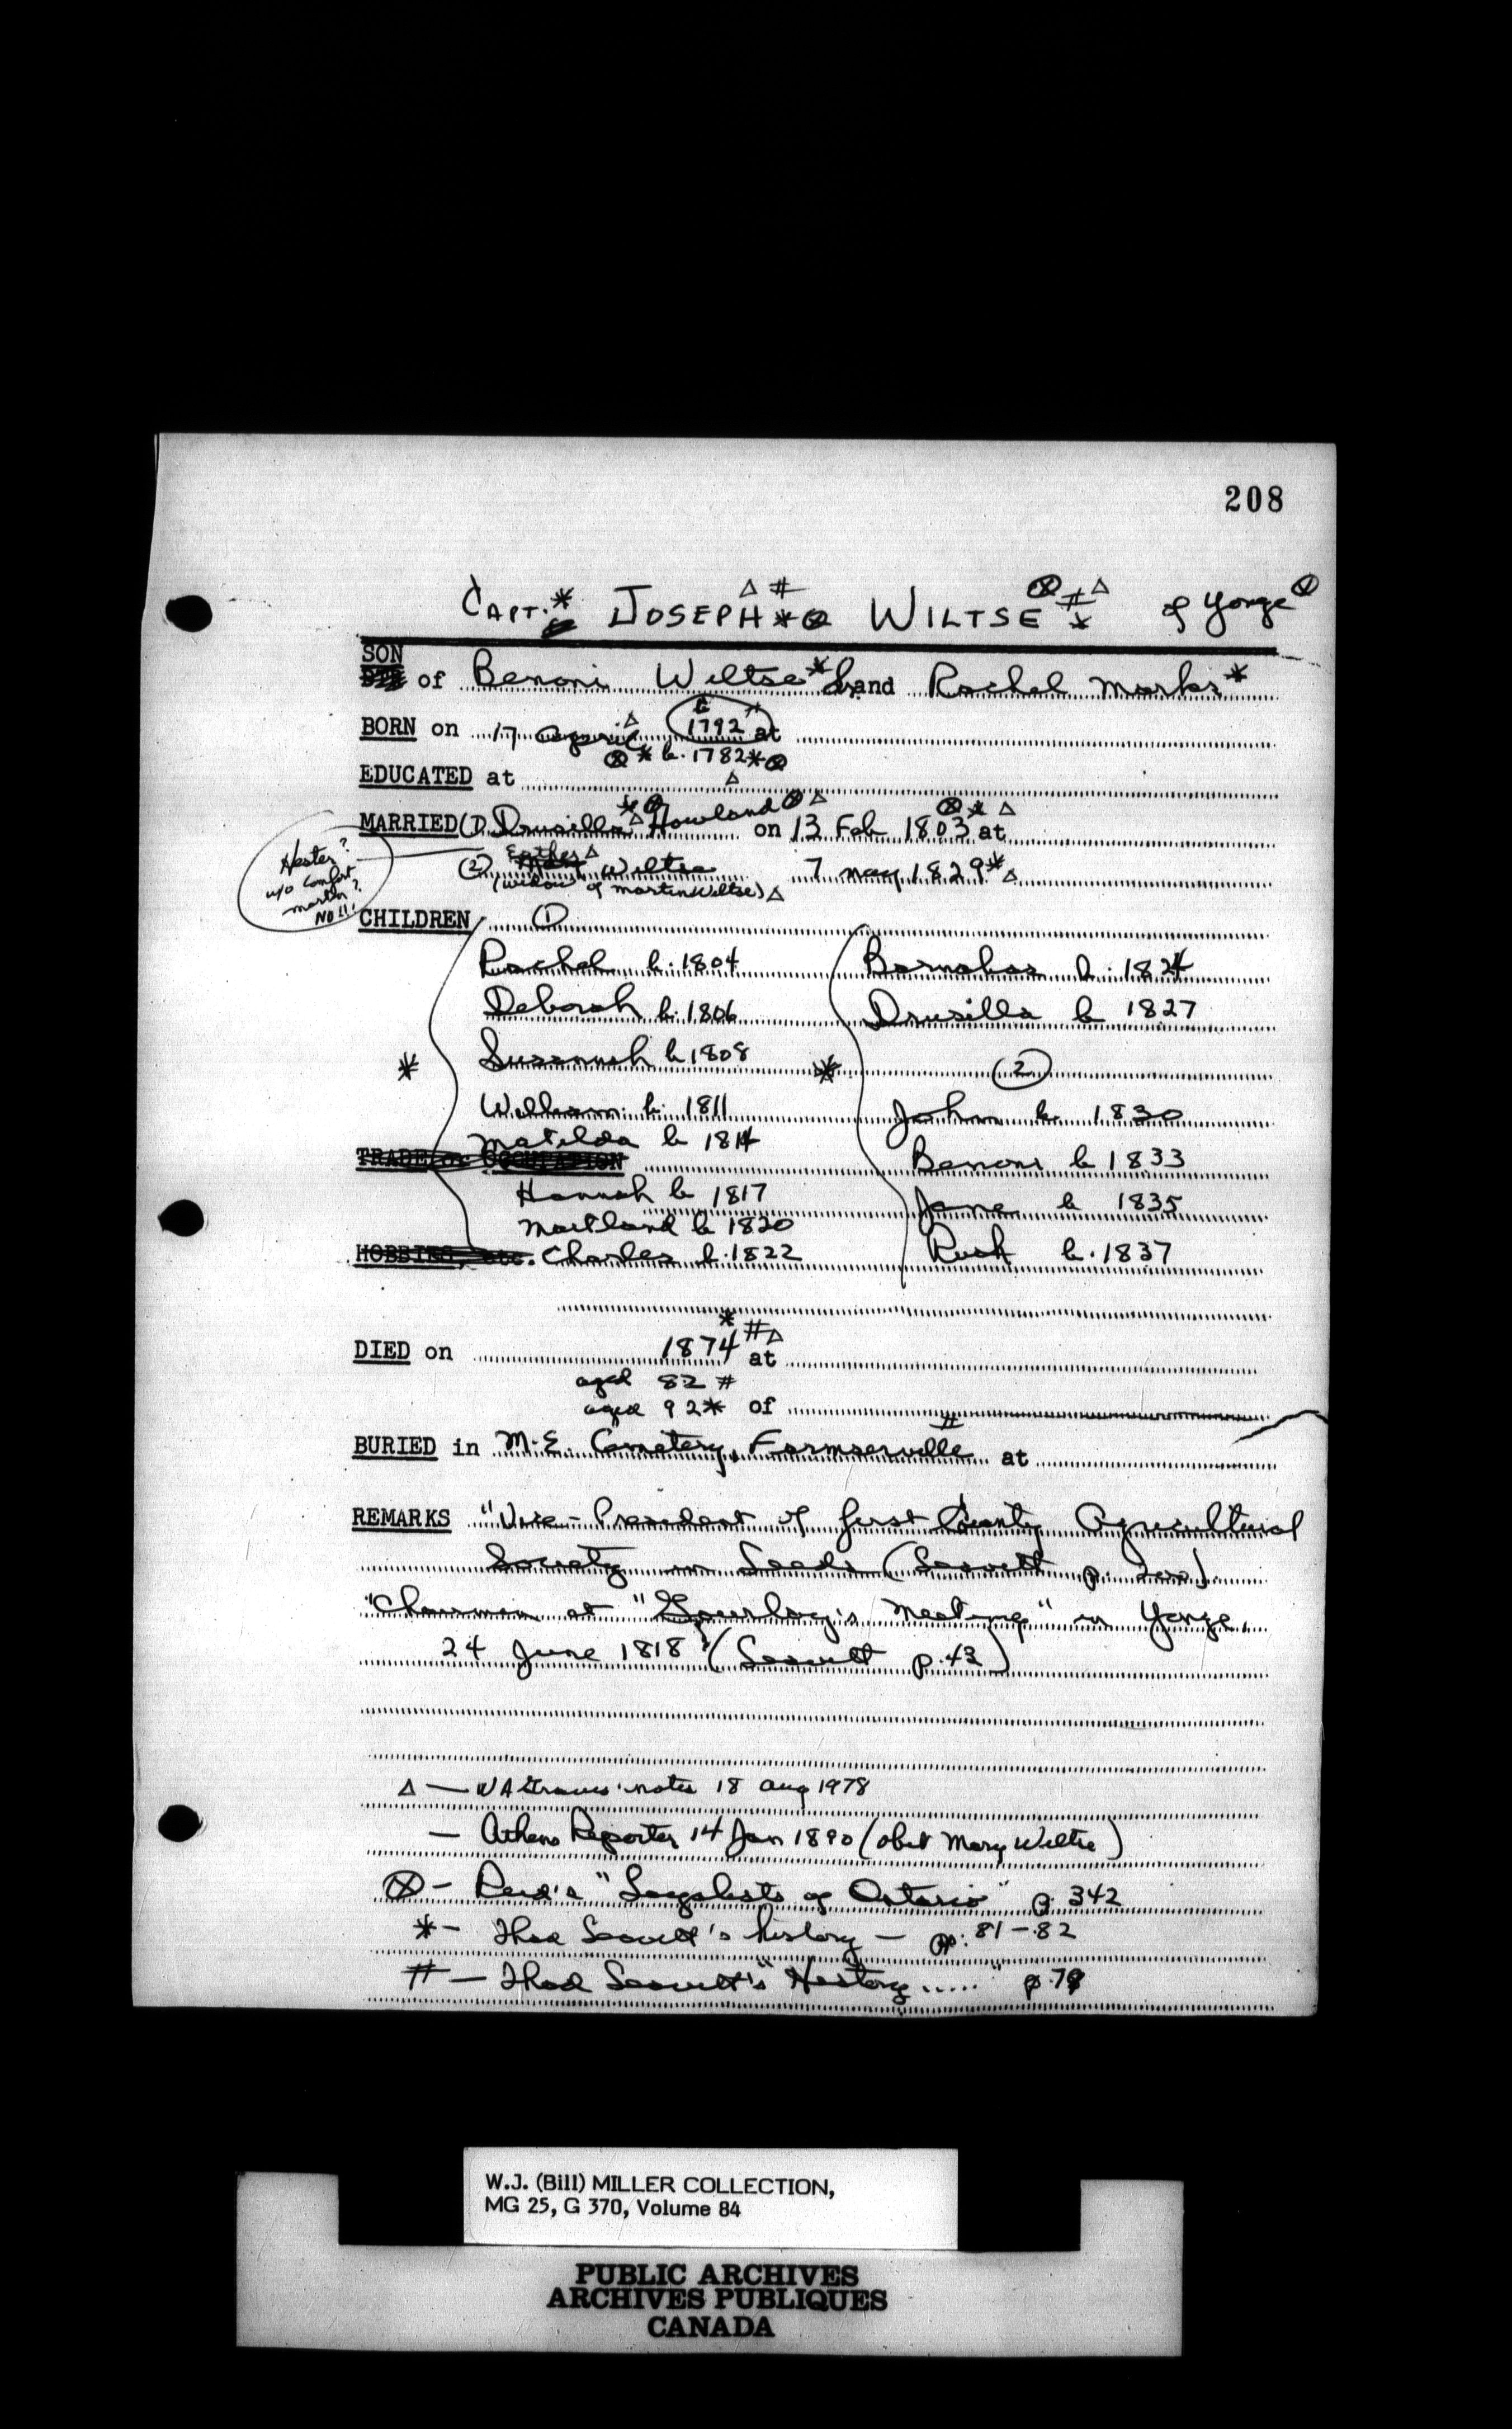 208
CAPT.* JOSEPH △ # * ⊗ WILTSE ⊗ # △ * of Yonge ⊗
SON
of Benoni Wiltse * and Rachel Marks *
BORN on 17 April △ 1792 # at
⊗ * b. 1782 * ⊗
EDUCATED at
MARRIED (1) Drusilla * ⊗ △ Howland ⊗ △ on 13 Feb 1803 ⊗ * △ at
(2) Esther △ Wiltse 7 May 1829 * △
(widow of Martin Wiltse) △
Hester?
w/o Comfort
Martin?
NO!!!
CHILDREN (1)
Rachel b. 1804 Barnabas b. 1824
Deborah b. 1806 Drusilla b 1827
* Susannah b 1808 * (2)
William b. 1811 John b. 1830
Matilda b 1814
TRADE or OCCUPATION Benoni b 1833
Hannah b 1817 Jane b 1835
Maitland b 1820
HOBBIES, etc. Charles b. 1822 Ruth b. 1837
DIED on 1874 * # △ at
aged 82 #
aged 92 * of
BURIED in M.E. Cemetery, Farmersville # at
REMARKS "Vice-President of first County Agricultural
Society in Leeds (Leavitt p. 200)
"Chairman at "Gourlay's Meeting" in Yonge,
24 June 1818" (Leavitt p. 43)
△ — notes 18 Aug 1978
— Athens Reporter 14 Jan 1890 (obit Mary Wiltse)
⊗ - Reid's "Loyalists of Ontario" p. 342
* - Thad Leavitt's history — pp. 81-82
# - Thad Leavitt's "History ....." p.
W.J. (Bill) MILLER COLLECTION,
MG 25, G 370, Volume 84
PUBLIC ARCHIVES
ARCHIVES PUBLIQUES
CANADA